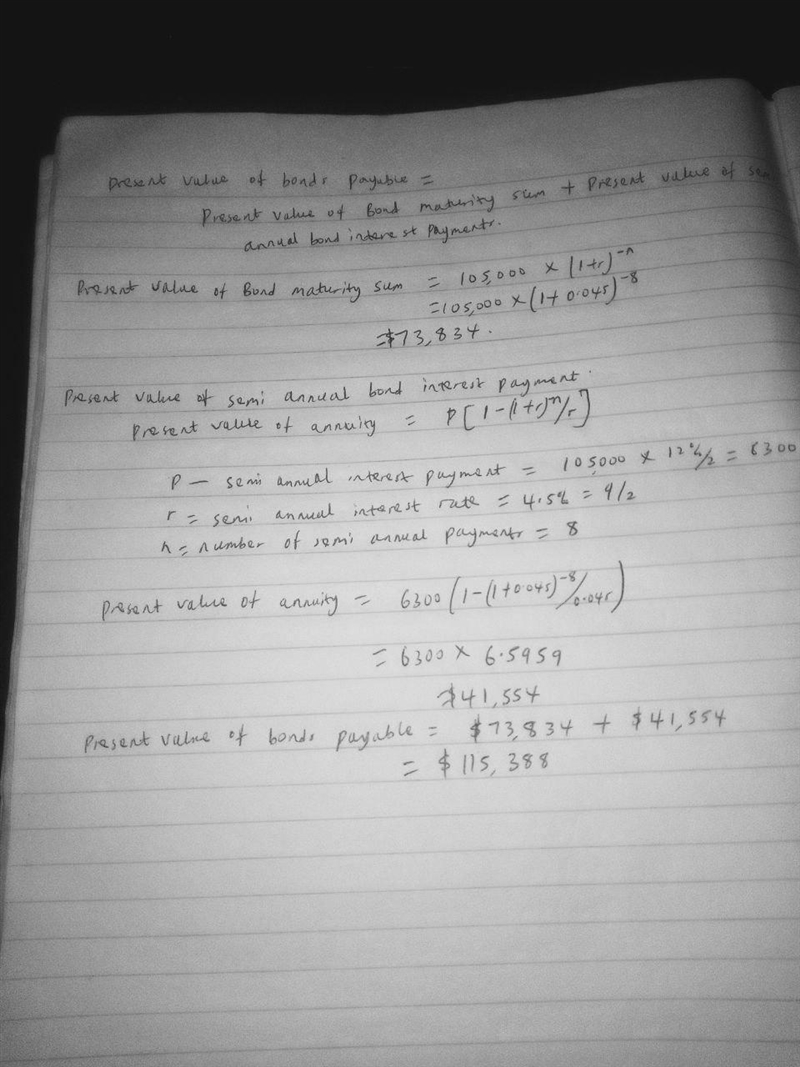 Present value of bonds payable =
Present value of Bond maturity sum + Present value of
annual bond interest payments.
Present value of Bond maturity sum = 105,000 × (1+r)^-n
= 105,000 × (1+0.045)^-8
= $73,834.
Present value of semi annual bond interest payment.
Present value of annuity = P[1-(1+r)^n/r]
P — semi annual interest payment = 105000 × 12%/2 = 6300
r = semi annual interest rate = 4.5% = 9/2
n = number of semi annual payments = 8
Present value of annuity = 6300 (1-(1+0.045)^-8/0.045)
= 6300 × 6.5959
$41,554
Present value of bonds payable = $73,834 + $41,554
= $115,388